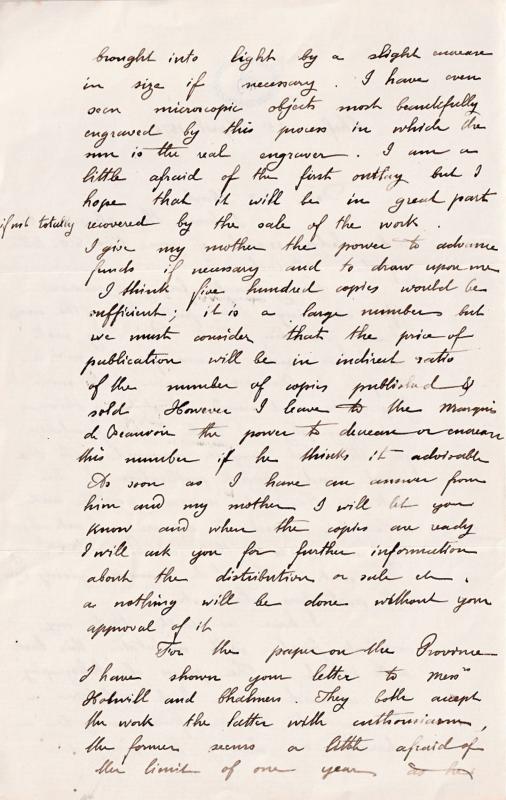 brought into light by a slight encrease
in size if necessary. I have even
seen microscopic objects most beautifully
engraved by this process in which the
sun is the real engraver. I am a
little afraid of the first outlay but I
hope that it will be in great part
if not totally recovered by the sale of the work.
I give my mother the power to advance
funds if necessary and to draw upon me
I think five hundred copies would be
sufficient; it is a large number but
we must consider that the price of
publication will be in indirect ratio
of the number of copies published &
sold However I leave to the Marquis
de Beauvoir the power to decrease or encrease
this number if he thinks it advisable
As soon as I have an answer from
him and my mother I will let you
know and when the copies are ready
I will ask you for further information
about the distribution or sale etc.
as nothing will be done without your
approval of it
For the paper on the Province
I have shown your letter to Mess<sup>rs</sup>
and Chalmers. They both accept
the work the latter with enthousiasm,
the former seems a little afraid of
the limit of one year as he